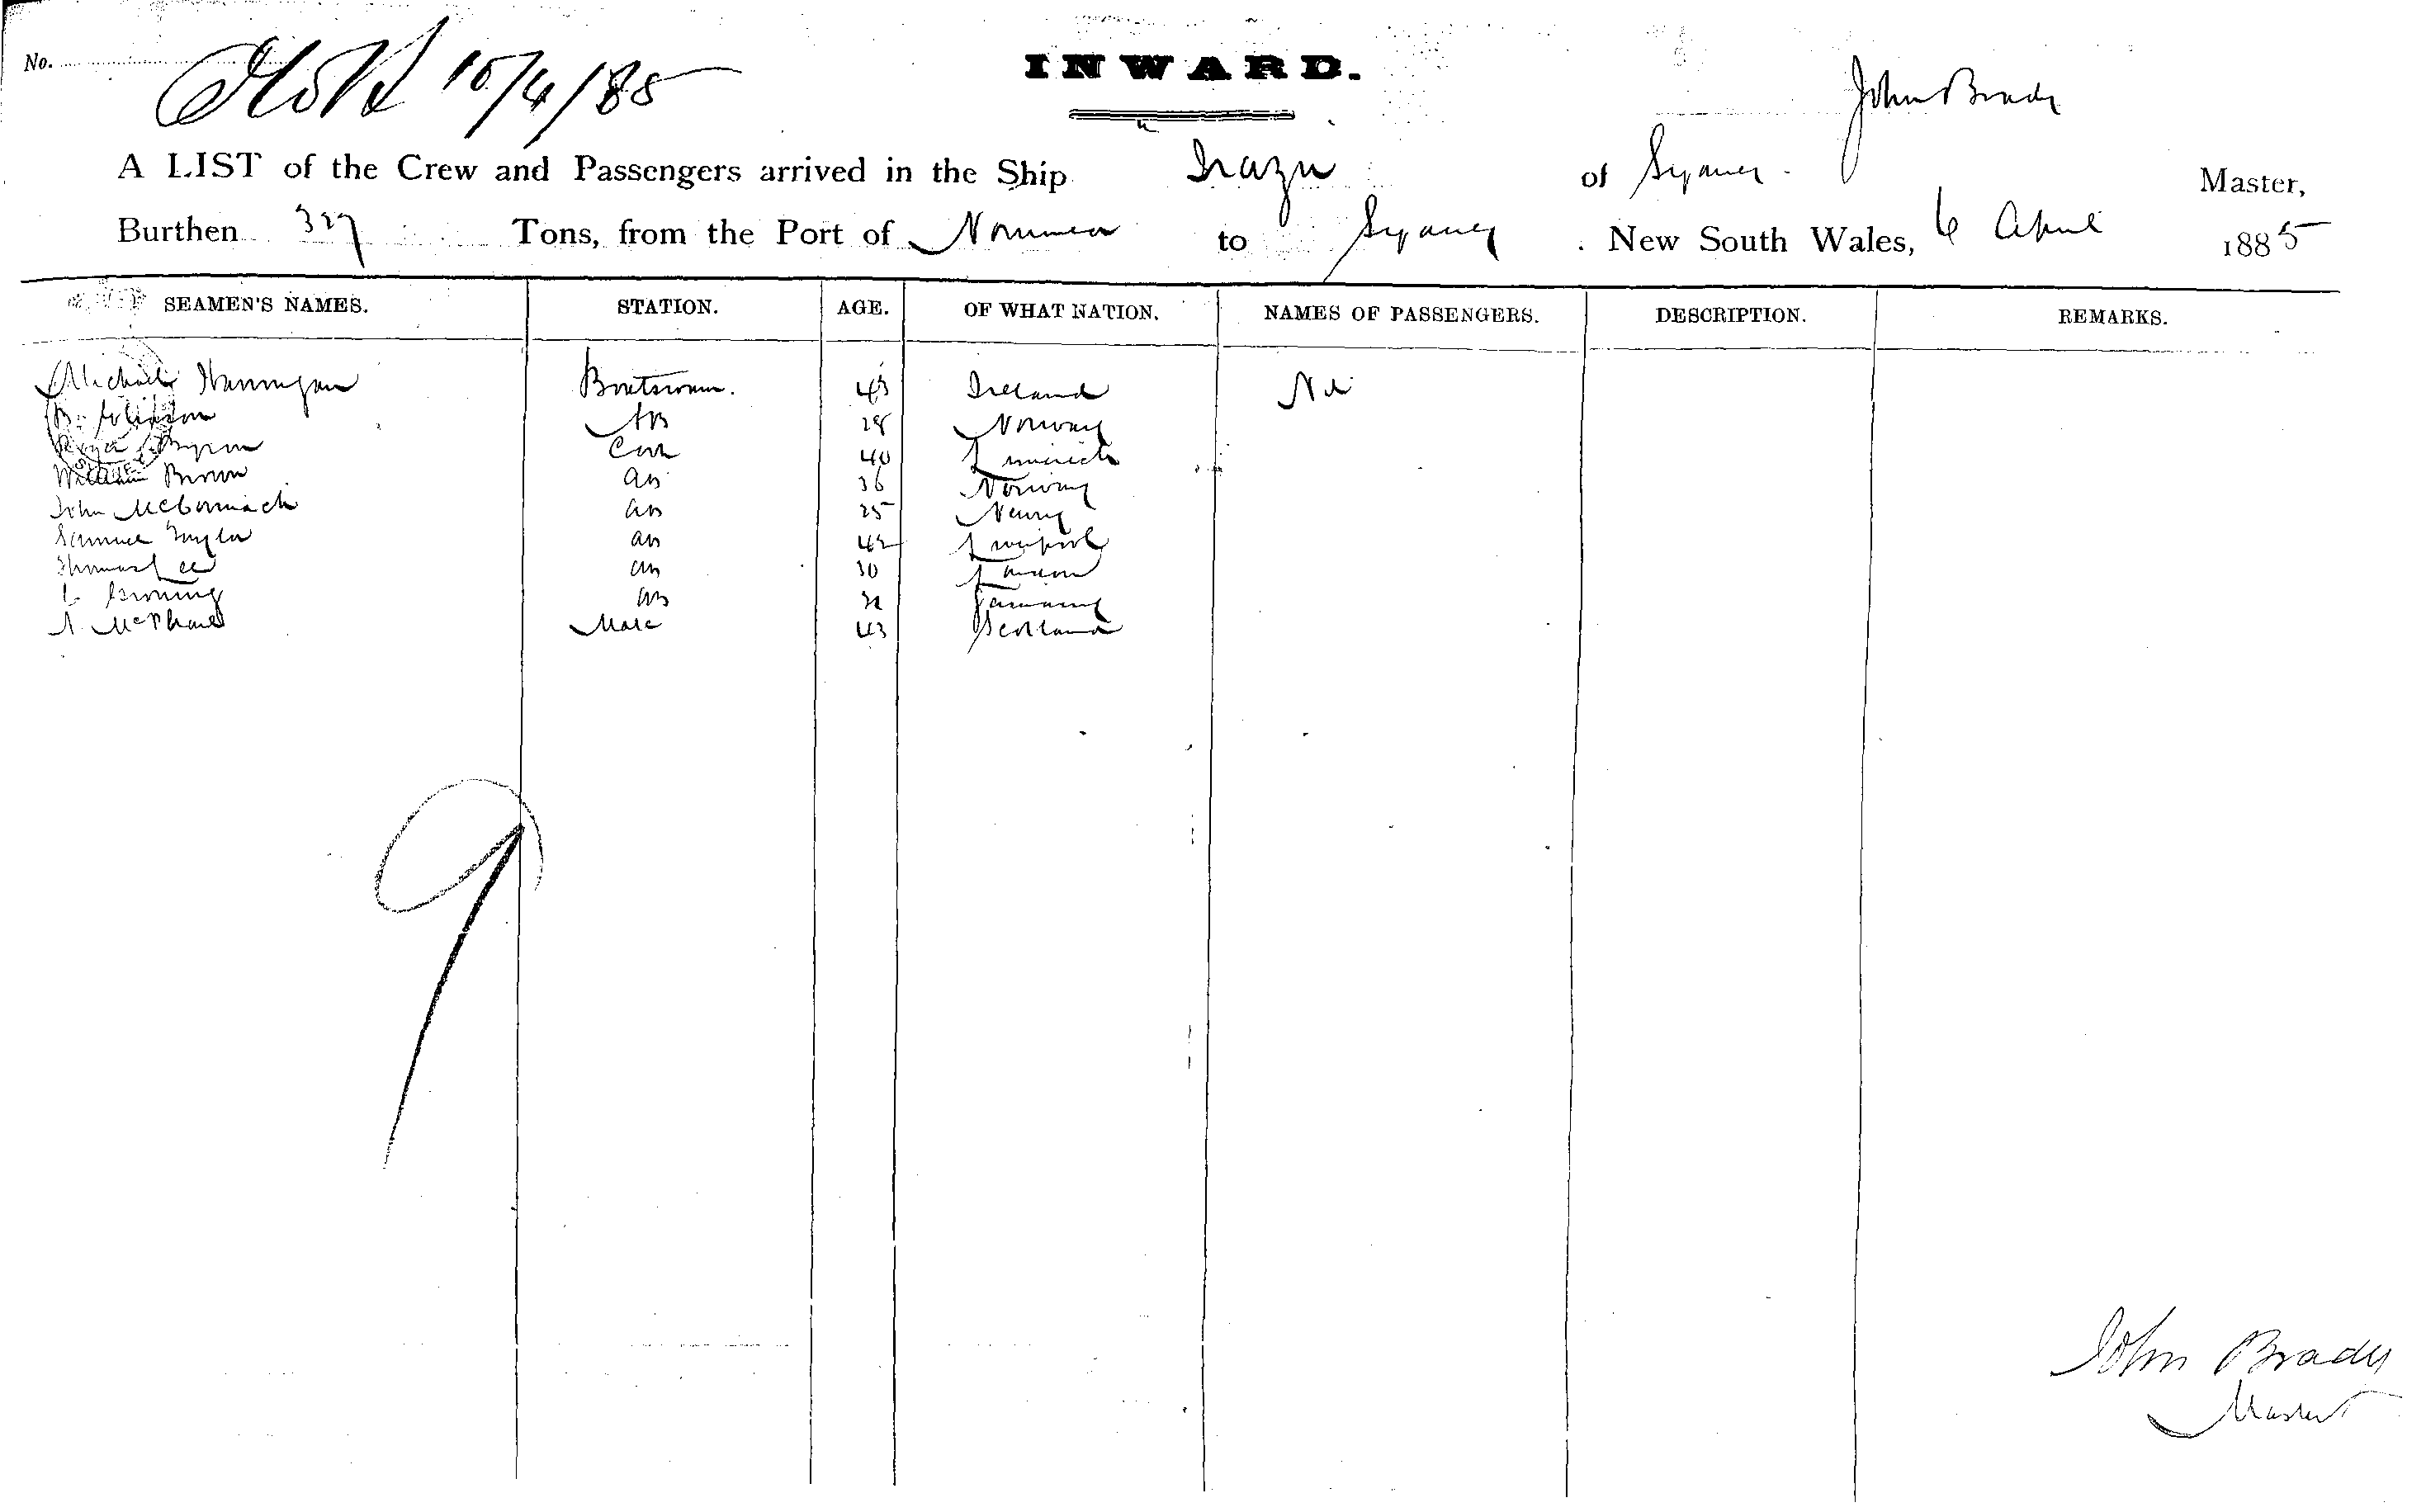 No.
10/4/85
INWARD.
John Brady
A LIST of the Crew and Passengers arrived in the Ship Irazu of Sydney. Master,
Burthen 327 Tons, from the Port of Noumea to Sydney. New South Wales, 6 April 1885
SEAMEN'S NAMES. STATION. AGE. OF WHAT NATION. NAMES OF PASSENGERS. DESCRIPTION. REMARKS.
Michael Hannigan Boatswain. 43 Ireland Nil
B. AB 28 Norway
Byron Cook 40 Limerick
William Brown AB 36 Norway
John McCormack AB 25 Newry
Samuel Taylor AB 42 Liverpool
Thomas Lee AB 30 London
AB Germany
A McPhail Mate 43 Scotland
9
John Brady
Master